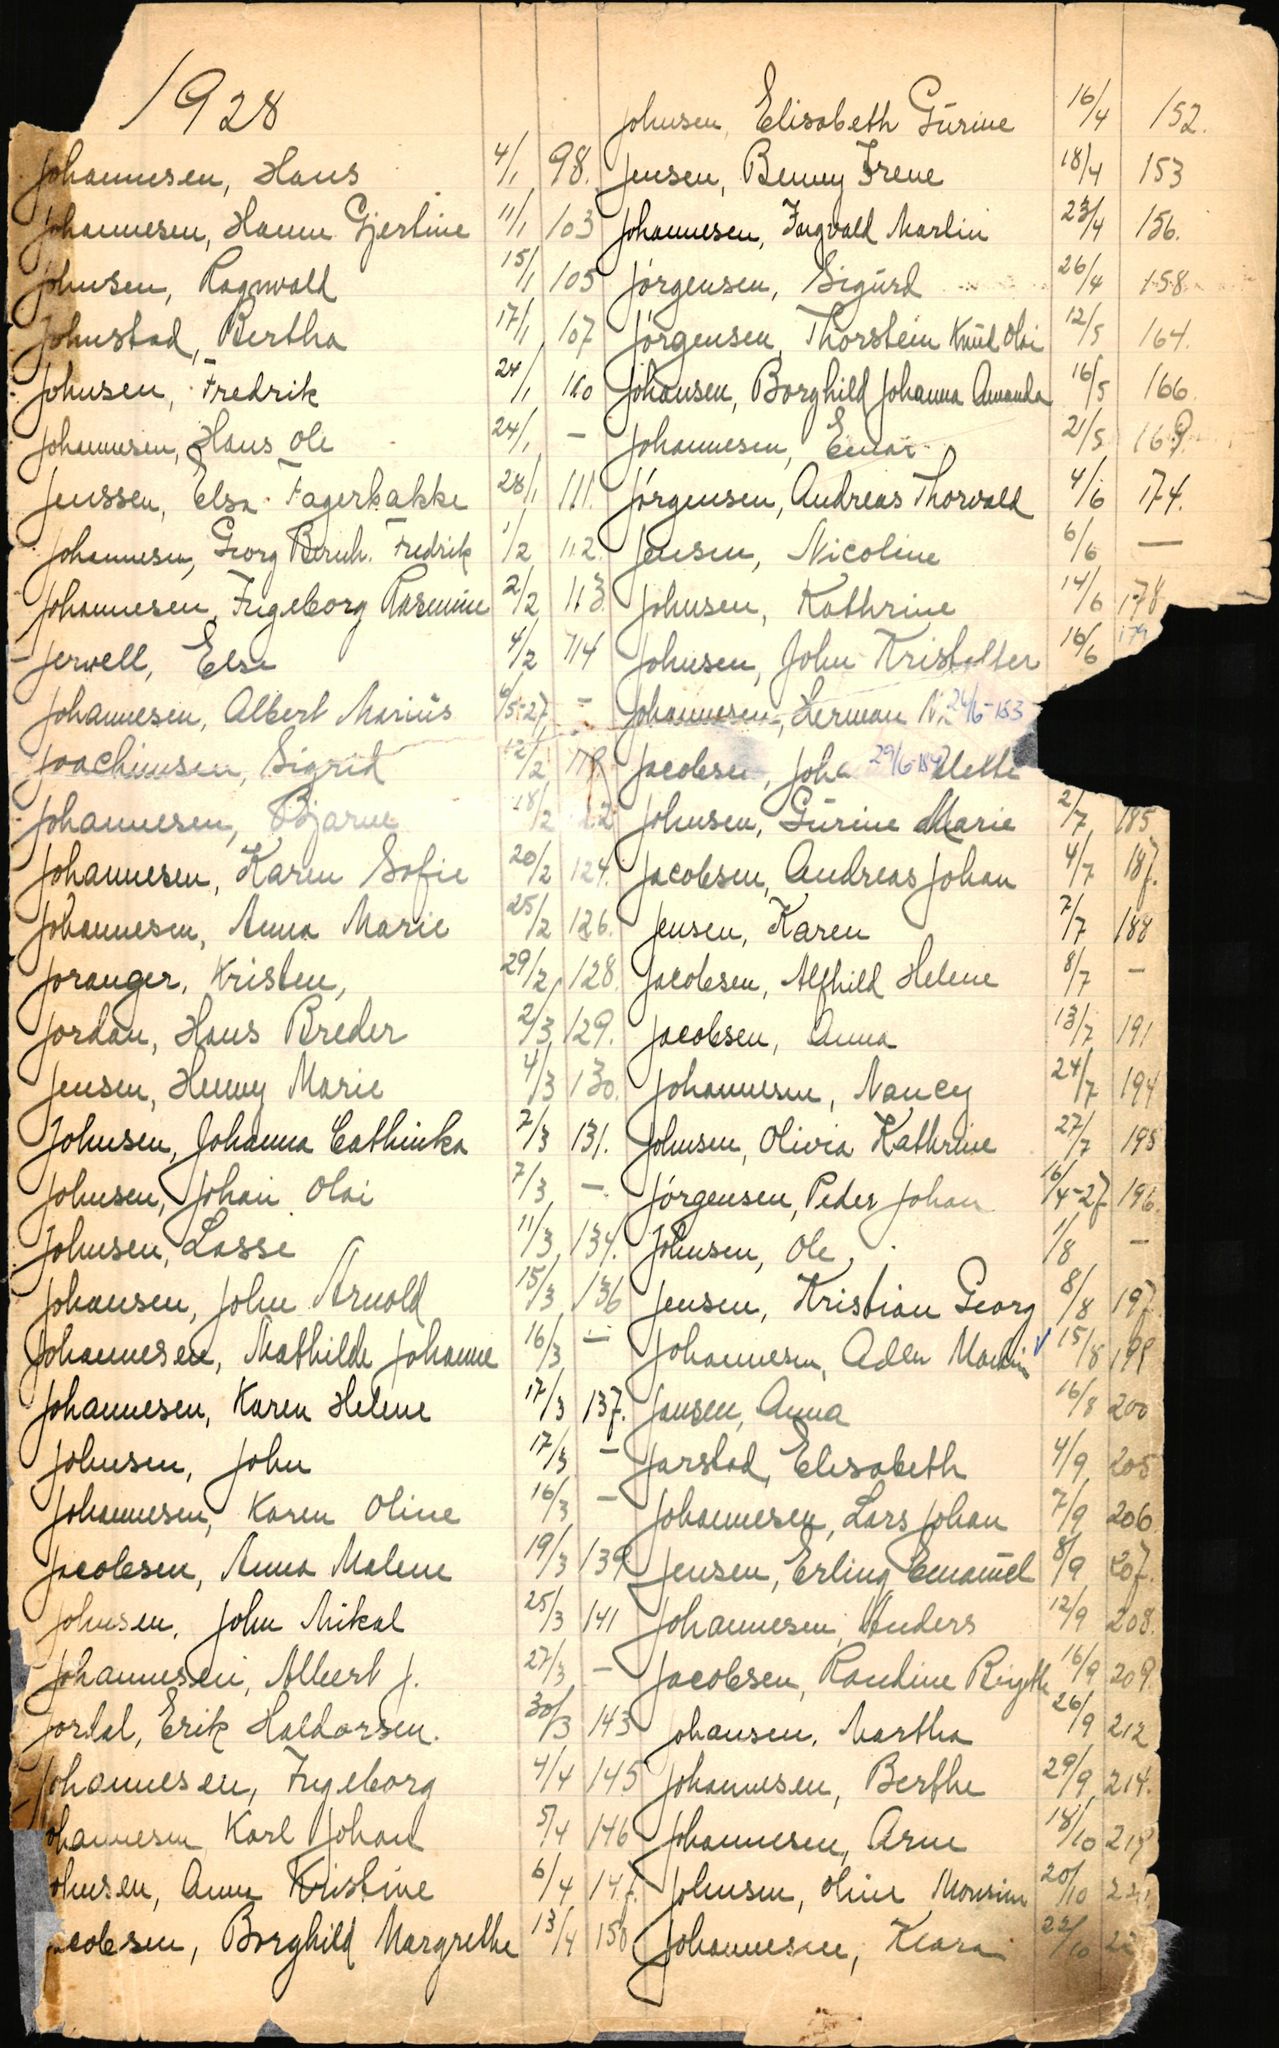 1928
Johannesen, Hans 4/1 98.
Johannesen, Hanna Gjertine 11/1 103
Johnsen, Ragnvald 15/1 105
Johnstad, Bertha 17/1 107
Johnsen, Fredrik 24/1 110
Johannesen, Hans Ole 24/1 –
Jenssen, Elsa Fagerbakke 28/1 111.
Johannesen, Georg Bernh. Fredrik 1/2 112.
Johannesen, Ingeborg Rasmine 2/2 113.
Jervell, Elsa 4/2 114
Johannesen, Albert Marius 6/5-27 –
Joachimsen, Sigrid 12/2
Johannesen, Bjarne 18/2 122
Johannesen, Karen Sofie 20/2 124.
Johannesen, Anna Marie 25/2 126.
Joranger, Kristen, 29/2 128.
Jordan, Hans Breder 2/3 129.
Jensen, Henny Marie 4/3 130.
Johnsen, Johanna Cathinka 7/3 131.
Johnsen, Johan Olai 7/3 –
Johnsen, Lasse 11/3 134.
Johansen, John Arnold 15/3 136
Johannesen, Mathilde Johanne 16/3 –
Johannesen, Karen Helene 17/3 137.
Johnsen, John 17/3 –
Johannesen, Karen Oline 16/3 –
Jacobsen, Anna Malene 19/3 139
Johnsen, John Mikal 25/3 141
Johannesen, Albert J. 27/3 –
Jordal, Erik Haldorsen. 30/3 143
Johannesen, Ingeborg 4/4 145
ohannesen Karl Johan 5/4 146
ohnsen, Anna Kristine 6/4 147.
acobsen, Borghild Margrethe 13/4 150
Johnsen, Elisabeth Gurine 16/4 152.
Jensen, Benny Irene 18/4 153
Johannesen, Ingvald Martin 23/4 156.
Jörgensen, Sigurd 26/4 158.
Jörgensen, Thorstein Knud Olai 12/5 164.
Johansen, Borghild Johanna Amanda 16/5 166.
Johannesen, Einar 21/5 169.
Jörgensen, Andreas Thorvald 4/6 174.
Jensen, Nicoline 6/6 –
Johnsen, Kathrine 14/6 178
Johnsen, John Kristoffer 16/6 179
Johannesen, Herman N. 24/6-183
Jacobsen, Joha 29/6-184 Mette
Johnsen, Gurine Marie 2/7 185
Jacobsen, Andreas Johan 4/7 187.
Jensen, Karen 7/7 188
Jacobsen, Alfhild Helene 8/7 –
Jacobsen, Anna 13/7 191
Johannesen, Nancy 24/7 194
Johnsen, Olivia Kathrine 27/7 195
Jörgensen, Peder Johan 16/4-27 196.
Johnsen, Ole 1/8 –
Jensen, Kristian Georg 8/8 197.
Johannesen, Martin 15/8 199
Jansen, Anna 16/8 200
Jarstad, Elisabeth 4/9 205
Johannesen, Lars Johan 7/9 206
Jensen, Erling Emanuel 8/9 207.
Johannesen, Anders 12/9 208.
Jacobsen, Randine Birgitte 16/9 209.
Johansen, Martha 26/9 212
Johannesen, Berthe 29/9 214.
Johannesen, Arne 18/10 219
Johnsen, Oline Monsine 20/10
Johannesen, Klara 22/10